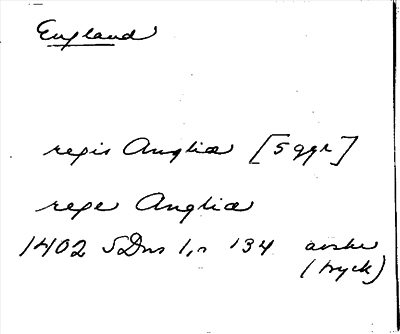 England
regis Anglie [5 ggr]
rege Anglie
1402 SDns 1, n 134 avskr
(tryck)